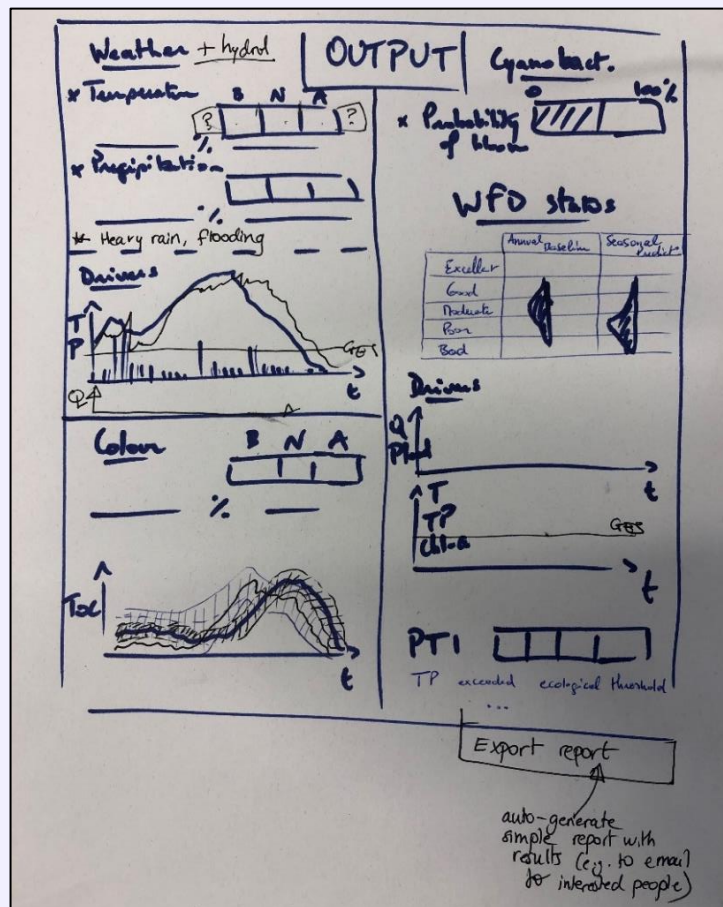 OUTPUT
Weather + hydrol
* Temperature
B N A
? ?
%
* Precipitation
%
* Heavy rain, flooding
Drivers
T
P
GES
t
Q
Colour
B N A
%
TOC
t
Cyanobact.
0 100%
* Probability
of bloom
WFD status
Annual Baseline
Seasonal Predict
Excellent
Good
Moderate
Poor
Bad
Drivers
Q
t
T
TP
Chl.a
GES
t
PTI
TP exceeded ecological threshold
...
Export report
auto-generate
simple report with
results (e.g. to email
to interested people)